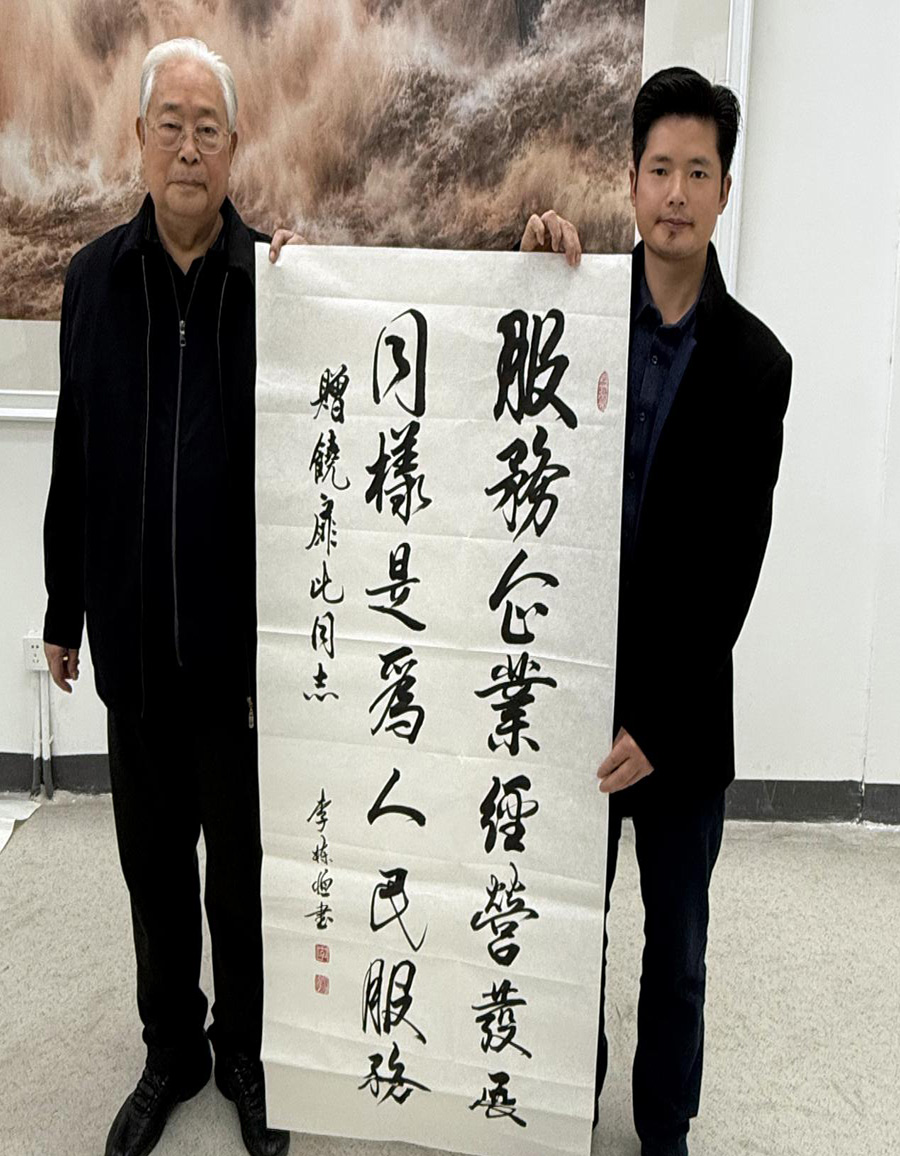 服務企業經營發展
同樣是爲人民服務
贈饒扉此同志
李栋恒书